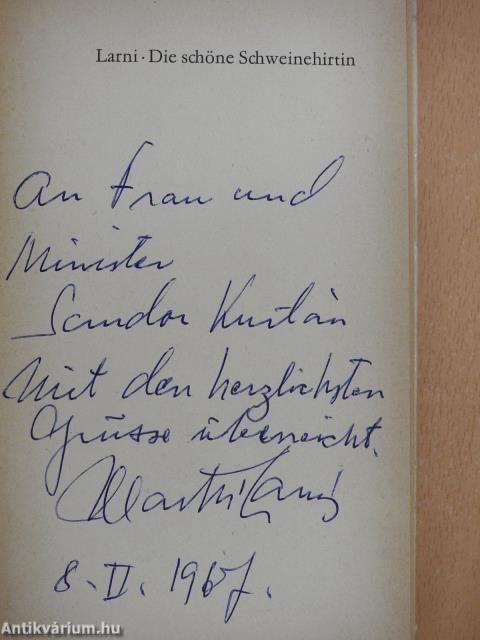 Larni · Die schöne Schweinehirtin
An Frau und
Minister
Sandor Kurtán
Mit den herzlichsten
Grüsse überreicht.
Martti Larni
8. II. 1967.
Antikvárium.hu